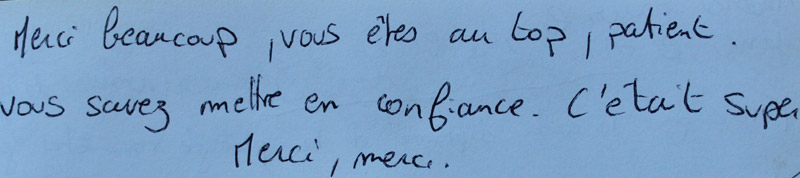 Merci beaucoup, vous êtes au top, patient.
vous savez mettre en confiance. C'était super
Merci, merci.